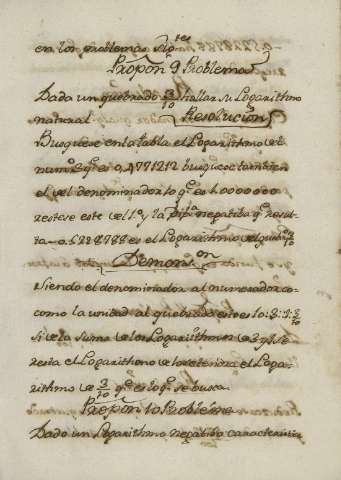 en los problemas sig.tes
Propon 9 Problema
Dada un quebrado 3/10 hallar su Logarithmo
natural
Resolución
Busquese en la tabla el Logarithmo del
num.o 3 q.e es 0,4771212 busquese tambien
el del denominador 10 q.e es 1.0000000
restese este del 1.o y la dif.a negatiba q.e resul-
ta - 0.5228788 es el Logarithmo del queb.do 3/10
Demons.on
Siendo el denominador al numerador co-
como la unidad al quebrado esto es 10:3:1:3/10
Si de la suma de los Logarithmos de 3 y 1 se
resta el Logarithmo de
el Logar-
rithmo de 3/10 q.e es lo q.e se busca.
Propon 10 Problema
Dado un Logarithmo negatibo caracteristica